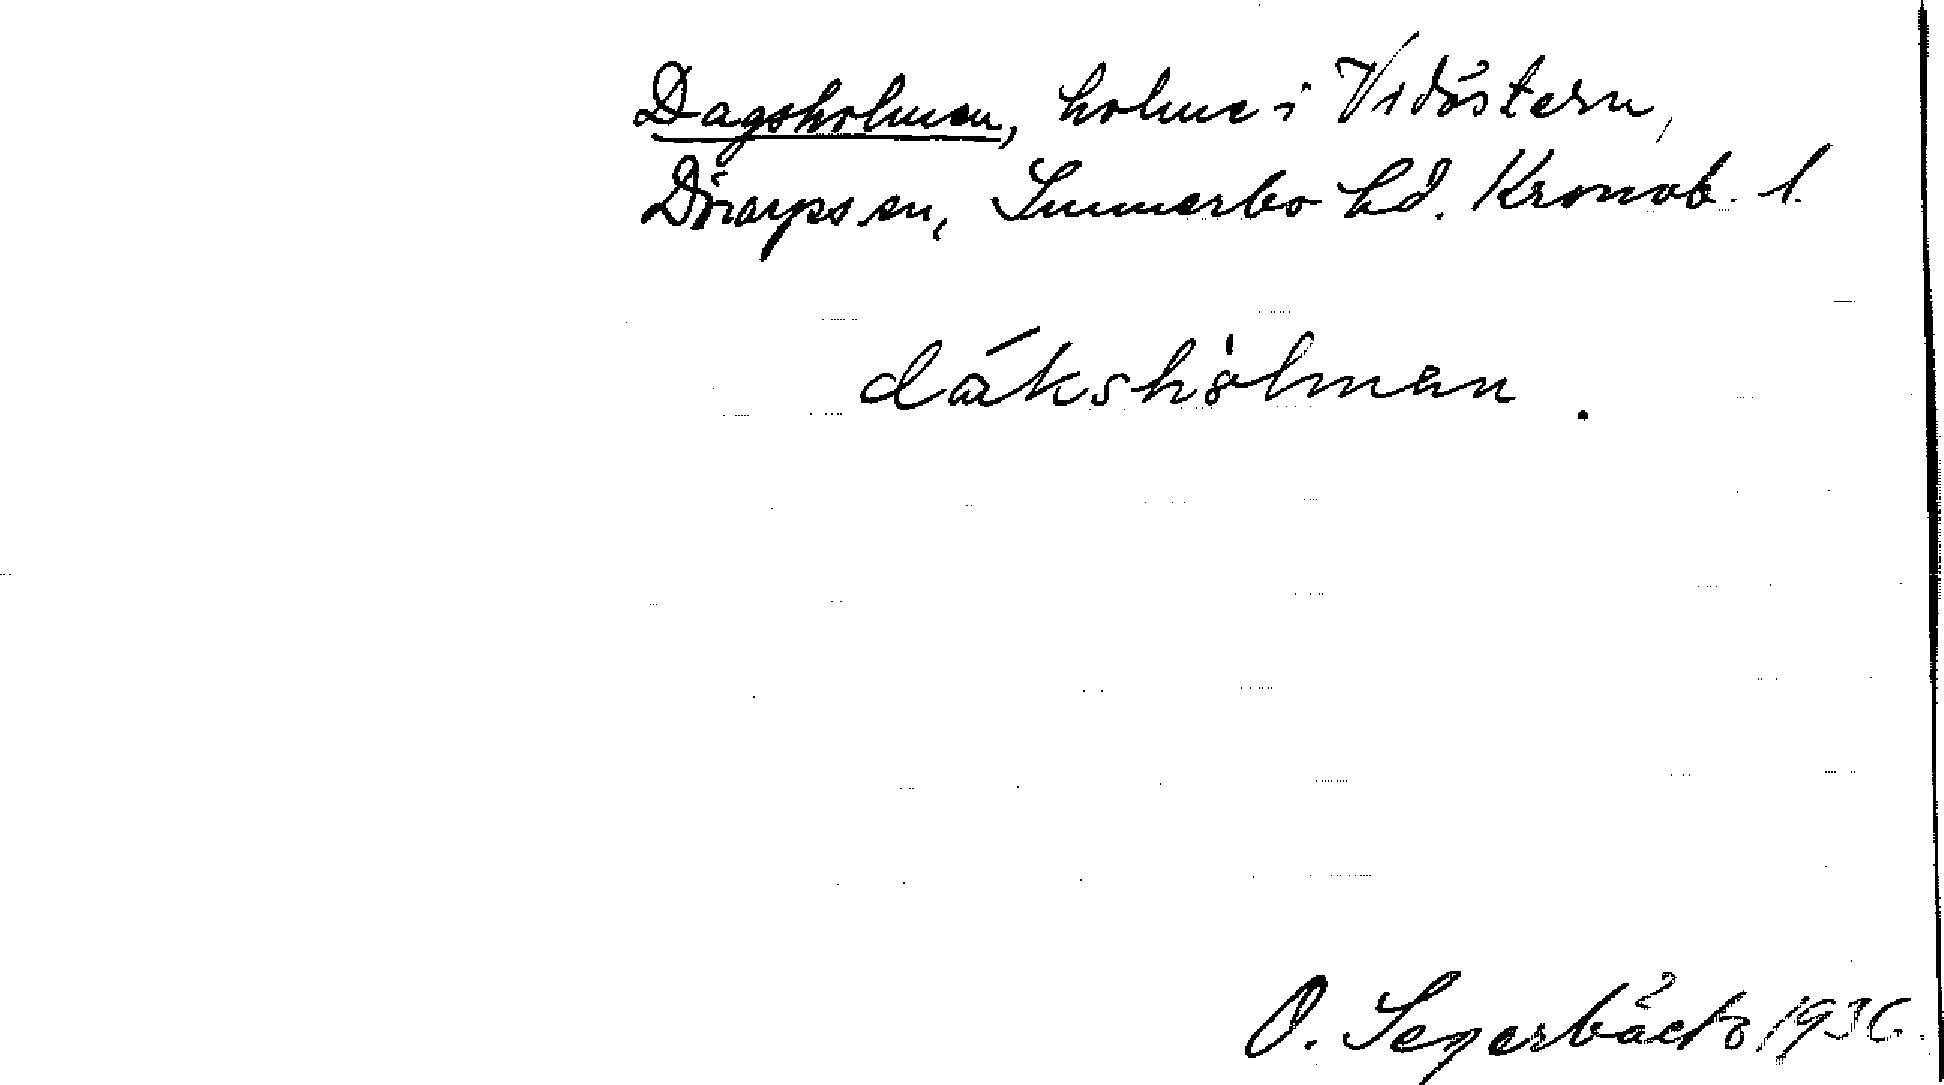 Dagsholmen, holme i Vidöstern,
Dörarps sn, Sunnerbo hd. Kronob. l.
dákshòlmen.
O. Segerbäck 1936.